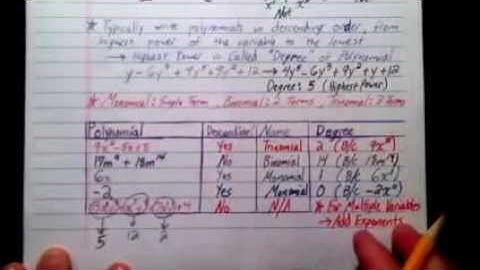 Not
* Typically write polynomials in descending order, from
highest power of the variable to the lowest
→ Highest Power is Called "Degree" of Polynomial
→ 4y⁵ - 6y³ + 9y² + y + 12
Degree: 5 (Highest Power)
* Monomial: Single Term, Binomial: 2 Terms, Trinomial: 3 Terms
Polynomial Descending Name Degree
9x² - 5x + 3 Yes Trinomial 2 (B/c 9x²)
No Binomial 14 (B/c 18m¹⁴)
6x Yes Monomial 1 (B/c 6x¹)
-2 Yes Monomial 0 (B/c -2x⁰)
+4 No N/A * For Multiple Variables
→ Add Exponents
5 12 2